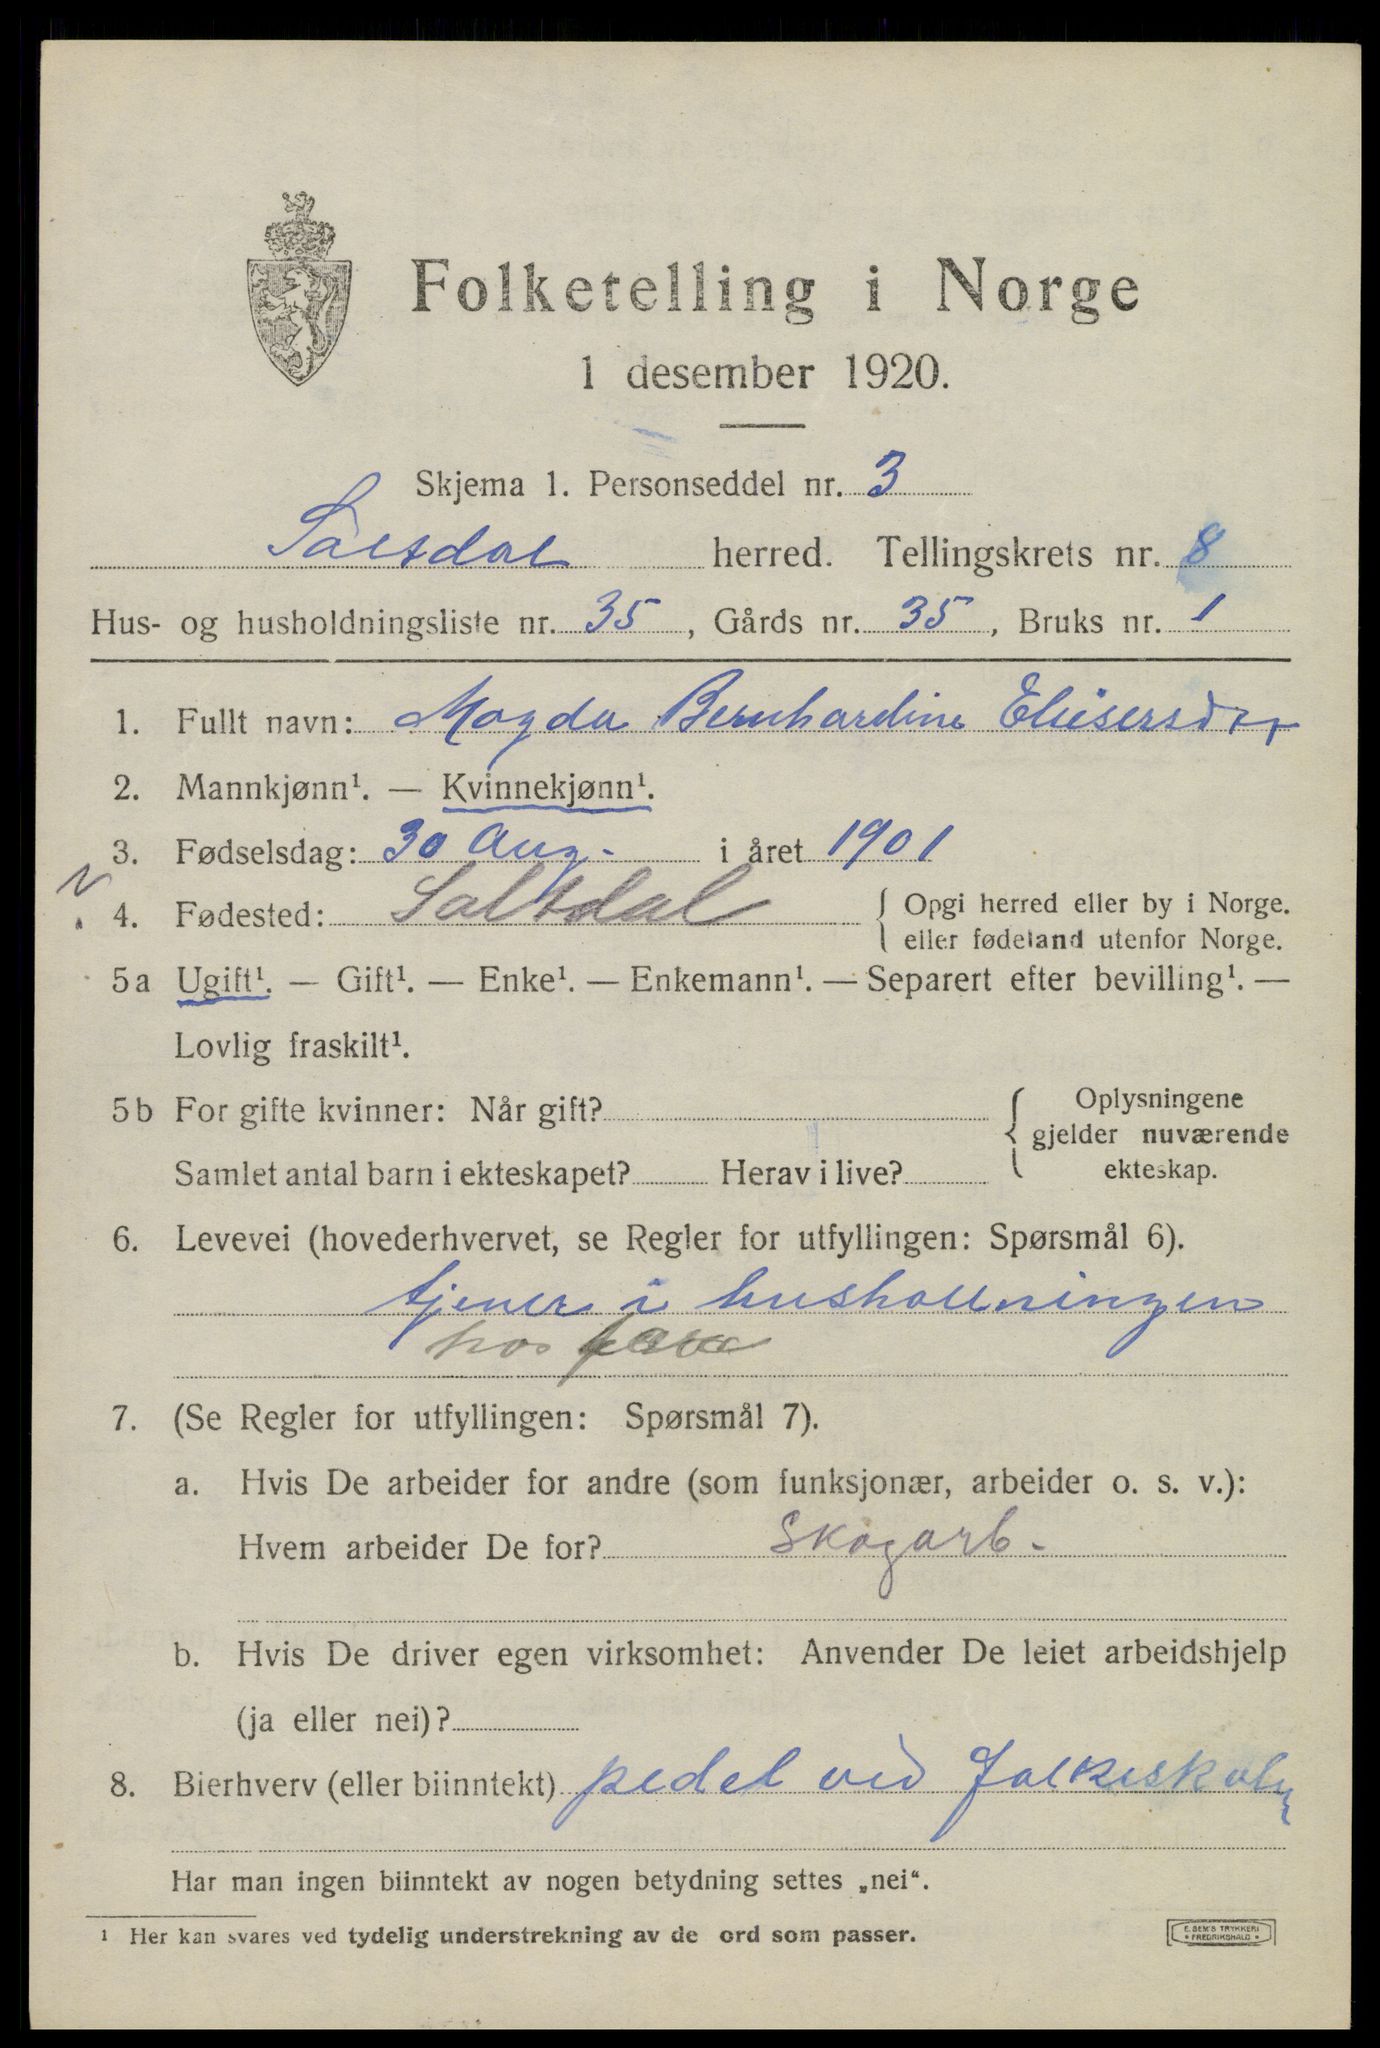 Folketelling i Norge
1 desember 1920.
Skjema 1. Personseddel nr. 3
Saltdal herred. Tellingskrets nr. 8
Hus- og husholdningsliste nr. 35, Gårds nr. 35, Bruks nr. 1
1. Fullt navn: Magda Bernhardine Elisersdtr
2. Mannkjønn¹. — Kvinnekjønn¹.
3. Fødselsdag: 30 Aug. i året 1901
4. Fødested: Saltdal { Opgi herred eller by i Norge.
eller fødeland utenfor Norge.
5a Ugift¹. — Gift¹. — Enke¹. — Enkemann¹. — Separert efter bevilling¹. —
Lovlig fraskilt¹.
5b For gifte kvinner: Når gift? { Oplysningene
gjelder nuværende
Samlet antal barn i ekteskapet? Herav i live? ekteskap.
6. Levevei (hovederhvervet, se Regler for utfyllingen: Spørsmål 6).
tjener i husholningen
hos
7. (Se Regler for utfyllingen: Spørsmål 7).
a. Hvis De arbeider for andre (som funksjonær, arbeider o. s. v.):
Hvem arbeider De for? Skogarb.
b. Hvis De driver egen virksomhet: Anvender De leiet arbeidshjelp
(ja eller nei)?
8. Bierhverv (eller biinntekt) pedel ved Folkeskolen
Har man ingen biinntekt av nogen betydning settes „nei“.
¹ Her kan svares ved tydelig understrekning av de ord som passer.
E. SEM'S TRYKKERI
FREDRIKSHALD